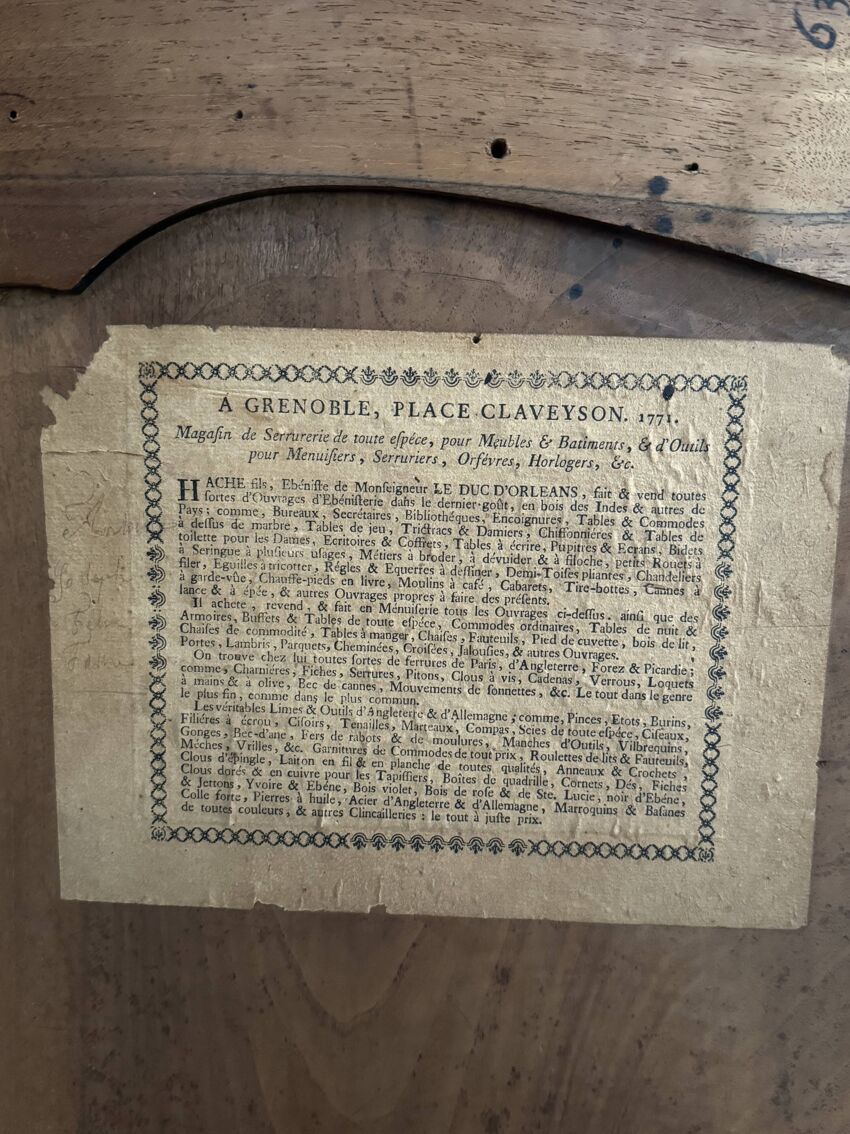 63
A GRENOBLE, PLACE CLAVEYSON. 1771.
Magaſin de Serrurerie de toute eſpéce, pour Meubles & Batiments, & d'Outils
pour Menuiſiers, Serruriers, Orfévres, Horlogers, &c.
HACHE fils, Ebéniſte de Monſeigneur LE DUC D'ORLEANS, fait & vend toutes
ſortes d'Ouvrages d'Ebéniſterie dans le dernier goût, en bois des Indes & autres de
Pays; comme, Bureaux, Secrétaires, Bibliothéques, Encoignures, Tables & Commodes
à deſſus de marbre, Tables de jeu, Trictracs & Damiers, Chiffonniéres & Tables de
toilette pour les Dames, Ecritoires & Coffrets, Tables à écrire, Pupitres & Ecrans, Bidets
à Seringue à pluſieurs uſages, Métiers à broder, à dévuider & à filoche, petits Rouets à
filer, Eguilles à tricotter, Régles & Equerres à deſſiner, Demi-Toiſes pliantes, Chandeliers
à garde-vûe, Chauffe-pieds en livre, Moulins à café, Cabarets, Tire-bottes, Cannes à
lance & à épée, & autres Ouvrages propres à faire des préſents.
Il achete, revend, & fait en Ménuiſerie tous les Ouvrages ci-deſſus, ainſi que des
Armoires, Buffets & Tables de toute eſpéce, Commodes ordinaires, Tables de nuit &
Chaiſes de commodité, Tables à manger, Chaiſes, Fauteuils, Pied de cuvette, bois de lit,
Portes, Lambris, Parquets, Cheminées, Croiſées, Jalouſies, & autres Ouvrages.
On trouve chez lui toutes ſortes de ferrures de Paris, d'Angleterre, Forez & Picardie;
comme, Charniéres, Fiches, Serrures, Pitons, Clous à vis, Cadenas, Verrous, Loquets
à mains & à olive, Bec de cannes, Mouvements de ſonnettes, &c. Le tout dans le genre
le plus fin, comme dans le plus commun.
Les véritables Limes & Outils d'Angleterre & d'Allemagne; comme, Pinces, Etots, Burins,
Filiéres à écrou, Ciſoirs, Tenailles, Marteaux, Compas, Scies de toute eſpéce, Ciſeaux,
Gonges, Bec-d'ane, Fers de rabots & de moulures, Manches d'Outils, Vilbrequins,
Méches, Vrilles, &c. Garnitures de Commodes de tout prix, Roulettes de lits & Fauteuils,
Clous d'épingle, Laiton en fil & en planche de toutes qualités, Anneaux & Crochets,
Clous dorés & en cuivre pour les Tapiſſiers, Boîtes de quadrille, Cornets, Dés, Fiches
& Jettons, Yvoire & Ebéne, Bois violet, Bois de roſe & de Ste. Lucie, noir d'Ebéne,
Colle forte, Pierres à huile, Acier d'Angleterre & d'Allemagne, Marroquins & Baſanes
de toutes couleurs, & autres Clincailleries: le tout à juſte prix.